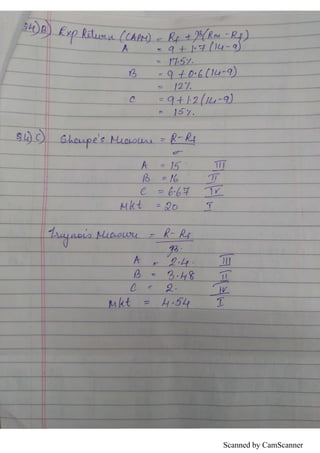 54)B) Exp Return (CAPM) = Rf + β(Rm - Rf)
A = 9 + 1.7 (14-9)
= 17.5%
B = 9 + 0.6 (14-9)
= 12%
C = 9 + 1.2 (14-9)
= 15%
54) C) Sharpe's Measure = R-Rf
σ
A = 15 III
B = 16 II
C = 6.67 IV
Mkt = 20 I
Traynois Measure = R-Rf
β
A = 2.4 III
B = 3.48 II
C = 2. IV
Mkt = 4.54 I
Scanned by CamScanner